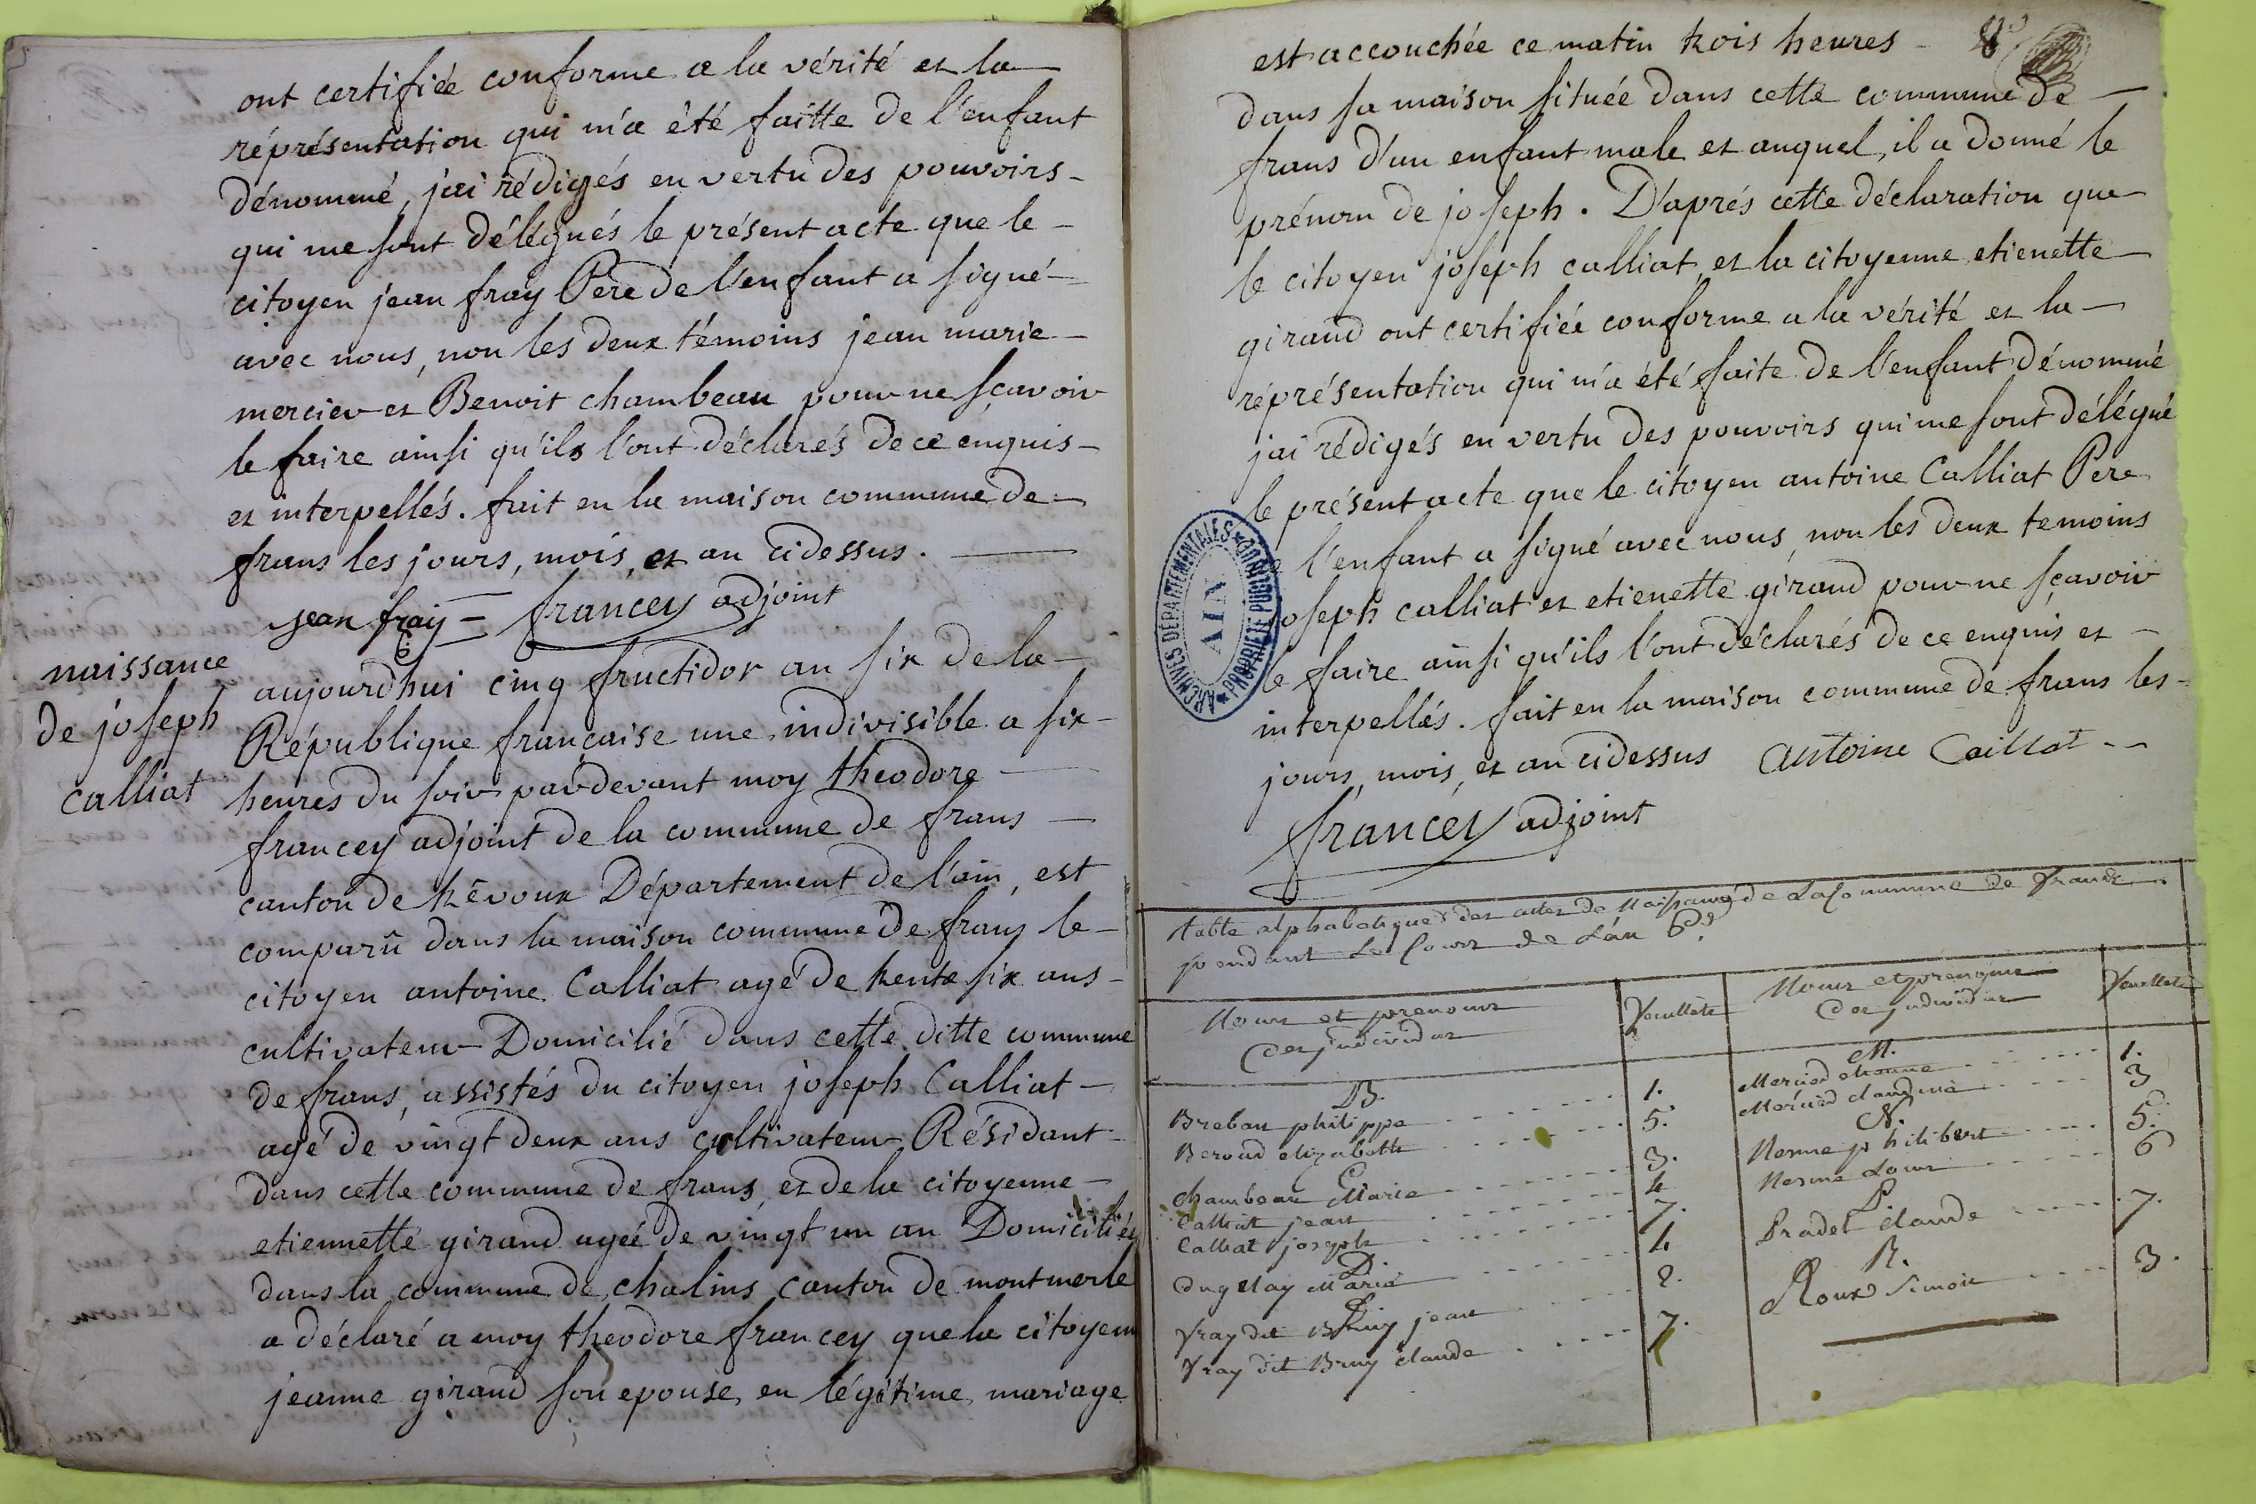 ont certifiée conforme a la vérité et la
réprésentation qui m'a été faitte de l'enfant
dénommé, j'ai rédigés en vertu des pouvoirs
qui me sont délégués le présent acte que le
citoyen jean fray Pere de l'enfant a signé
avec nous, non les deux témoins jean marie
mercier et Benoit chambeau pour ne sçavoir
le faire ainsi qu'ils l'ont déclarés de ce enquis
et interpellés. fait en la maison commune de
frans les jours, mois, et an cidessus.
jean fray francey adjoint
naissance
de joseph
calliat
aujourdhui cinq fructidor an six de la
République française une indivisible a six
heures du soir pardevant moy theodore
francey adjoint de la commune de frans
canton de trévoux Département de l'ain, est
comparû dans la maison commune de frans le
citoyen antoine Calliat agé de trente six ans
cultivateur Domicilié dans cette ditte commune
de frans, assistés du citoyen joseph Calliat
agé de vingt deux ans cultivateur Résidant
dans cette commune de frans et de la citoyenne
etiennette giraud agée de vingt un an Domiciliés
dans la commune de chalins canton de montmerle
a déclaré a moy theodore francey que la citoyenn
jeanne giraud son epouse en légitime mariage
est accouchée ce matin trois heures
dans sa maison située dans cette commune de
frans d'un enfant male et auquel il a donné le
prénom de joseph. D'aprés cette déclaration que
le citoyen joseph calliat et la citoyenne etienette
giraud ont certifiée conforme a la vérité et la
réprésentation qui m'a été faite de l'enfant dénommé
j'ai rédigés en vertu des pouvoirs qui me sont délégué
le présent acte que le citoyen antoine Calliat Pere
l'enfant a signé avec nous, non les deux temoins
joseph calliat et etienette giraud pour ne sçavoir
le faire ainsi qu'ils l'ont déclarés de ce enquis et
interpellés. fait en la maison commune de frans les
jours, mois, et an cidessus antoine Caillat
francey adjoint
ARCHIVES DÉPARTEMENTALES
PROPRIÉTÉ PUBLIQUE
AIN
table alphabetique des actes de Naissance de La Commune de frans
pendant Le Cours de L'an 6
Noms et prenoms feuillets Noms et prenoms feuillets
des individus des individus
B. M.
Breban philippe 1. Mercier etienne 1.
Beroud elizabeth 5. Mercier claudine 3
C N.
chambeau Marie 3. Nesme philibert 5.
Calliat jean 4 Nesme Louis 6
Calliat joseph 7. P
D. Pradel claude 7.
dugelay Marie 4 R.
F Roux Simon 3.
fray dit Bruy jean 2.
fray dit Bruy claude 7.